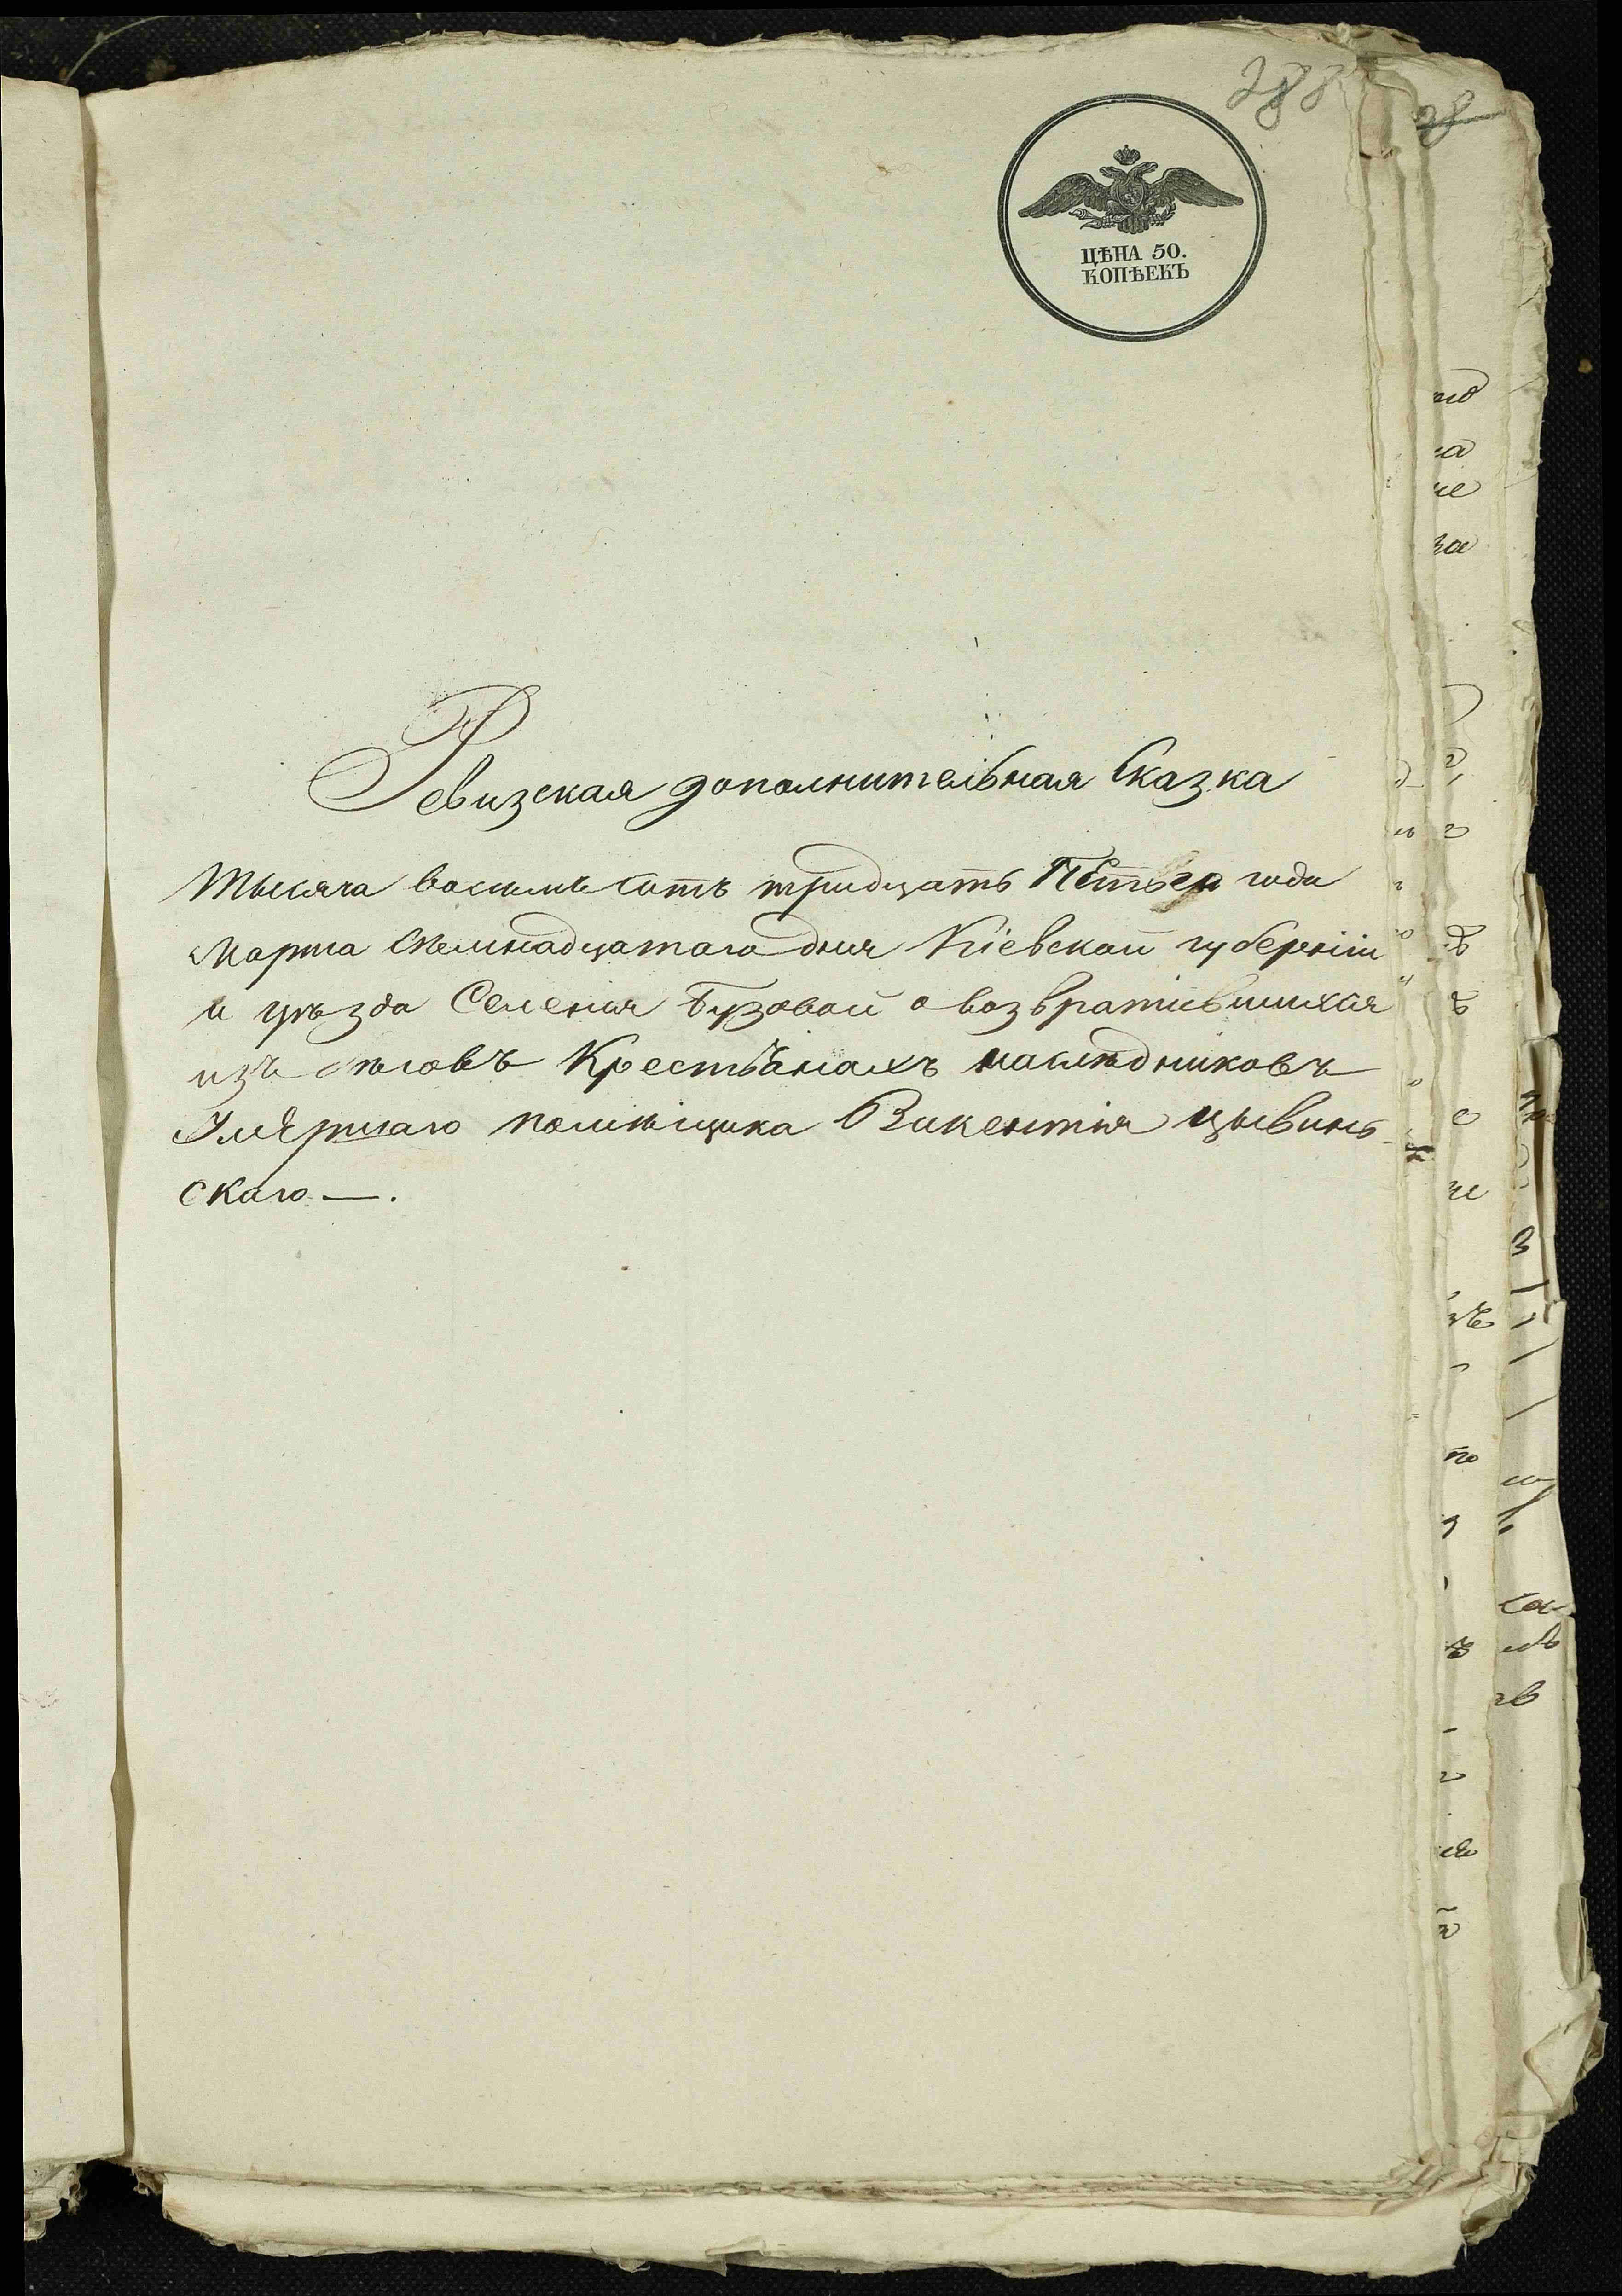 288
28
ЦѢНА 50.
КОПѢЕКЪ
Ревизская дополнительная Сказка
Тысяча восемь сотъ тридцать года
Марта Семнадцатого дня Кіевской губерніи
и уѣзда Селенія Бузовой о возвратившихся
изъ бѣговъ Крестьянахъ наслѣдниковъ
Умершаго помѣщика Викентія Цывинь
скаго —.